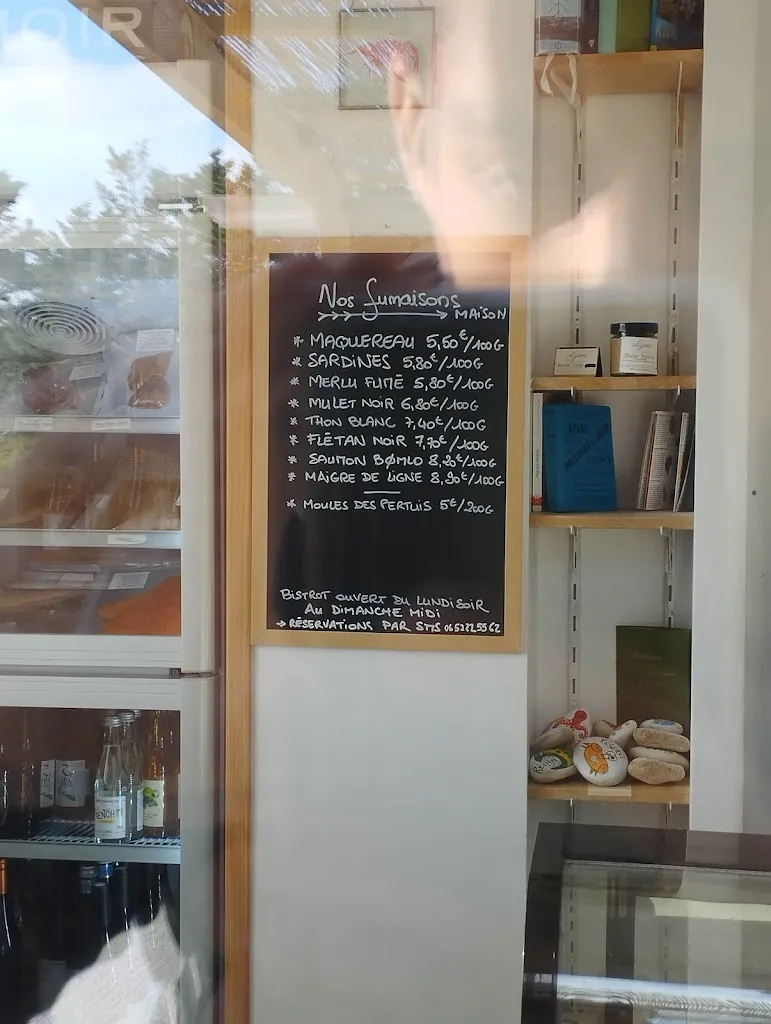 NOIR
Nos fumaisons
MAISON
* MAQUEREAU 5,50€/100G
* SARDINES 5,80€/100G
* MERLU FUMÉ 5,80€/100G
* MULET NOIR 6,80€/100G
* THON BLANC 7,40€/100G
* FLÉTAN NOIR 7,70€/100G
* SAUMON BØMLO 8,20€/100G
* MAIGRE DE LIGNE 8,90€/100G
* MOULES DES PERTUIS 5€/200G
BISTROT OUVERT DU LUNDI SOIR
AU DIMANCHE MIDI
→ RÉSERVATIONS PAR SMS 06 52 22 55 62
IPA